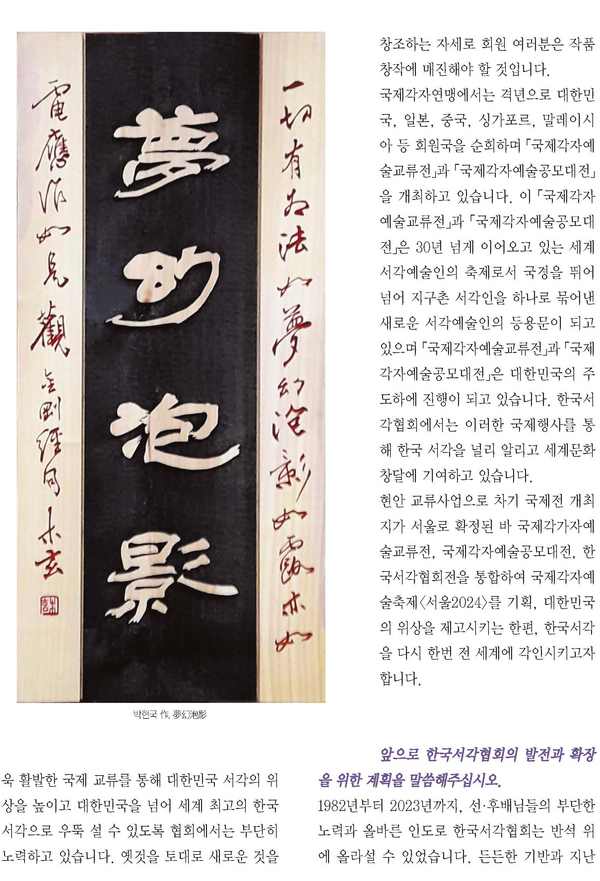 一切有為法如夢幻泡影如露亦如
夢幻泡影
電應作如是觀 金剛經句 木玄
박현국 作, 夢幻泡影
욱 활발한 국제 교류를 통해 대한민국 서각의 위
상을 높이고 대한민국을 넘어 세계 최고의 한국
서각으로 우뚝 설 수 있도록 협회에서는 부단히
노력하고 있습니다. 옛것을 토대로 새로운 것을
창조하는 자세로 회원 여러분은 작품
창작에 매진해야 할 것입니다.
국제각자연맹에서는 격년으로 대한민
국, 일본, 중국, 싱가포르, 말레이시
아 등 회원국을 순회하며 「국제각자예
술교류전」과 「국제각자예술공모대전」
을 개최하고 있습니다. 이 「국제각자
예술교류전」과 「국제각자예술공모대
전」은 30년 넘게 이어오고 있는 세계
서각예술인의 축제로서 국경을 뛰어
넘어 지구촌 서각인을 하나로 묶어낸
새로운 서각예술인의 등용문이 되고
있으며 「국제각자예술교류전」과 「국제
각자예술공모대전」은 대한민국의 주
도하에 진행이 되고 있습니다. 한국서
각협회에서는 이러한 국제행사를 통
해 한국 서각을 널리 알리고 세계문화
창달에 기여하고 있습니다.
현안 교류사업으로 차기 국제전 개최
지가 서울로 확정된 바 국제각가자예
술교류전, 국제각자예술공모대전, 한
국서각협회전을 통합하여 국제각자예
술축제〈서울2024〉를 기획, 대한민국
의 위상을 제고시키는 한편, 한국서각
을 다시 한번 전 세계에 각인시키고자
합니다.
앞으로 한국서각협회의 발전과 확장
을 위한 계획을 말씀해주십시오.
1982년부터 2023년까지, 선·후배님들의 부단한
노력과 올바른 인도로 한국서각협회는 반석 위
에 올라설 수 있었습니다. 든든한 기반과 지난